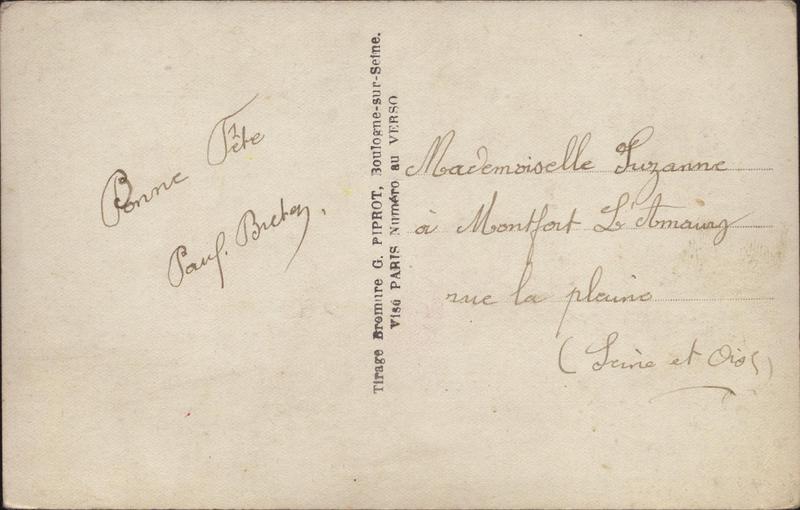 Bonne Fête
Paul Breton.
Tirage Bromure G. PIPROT, Boulogne-sur-Seine.
Visé PARIS Numéro au VERSO
Mademoiselle Suzanne
à Montfort L'Amaury
rue la pleine
(Seine et Oise)